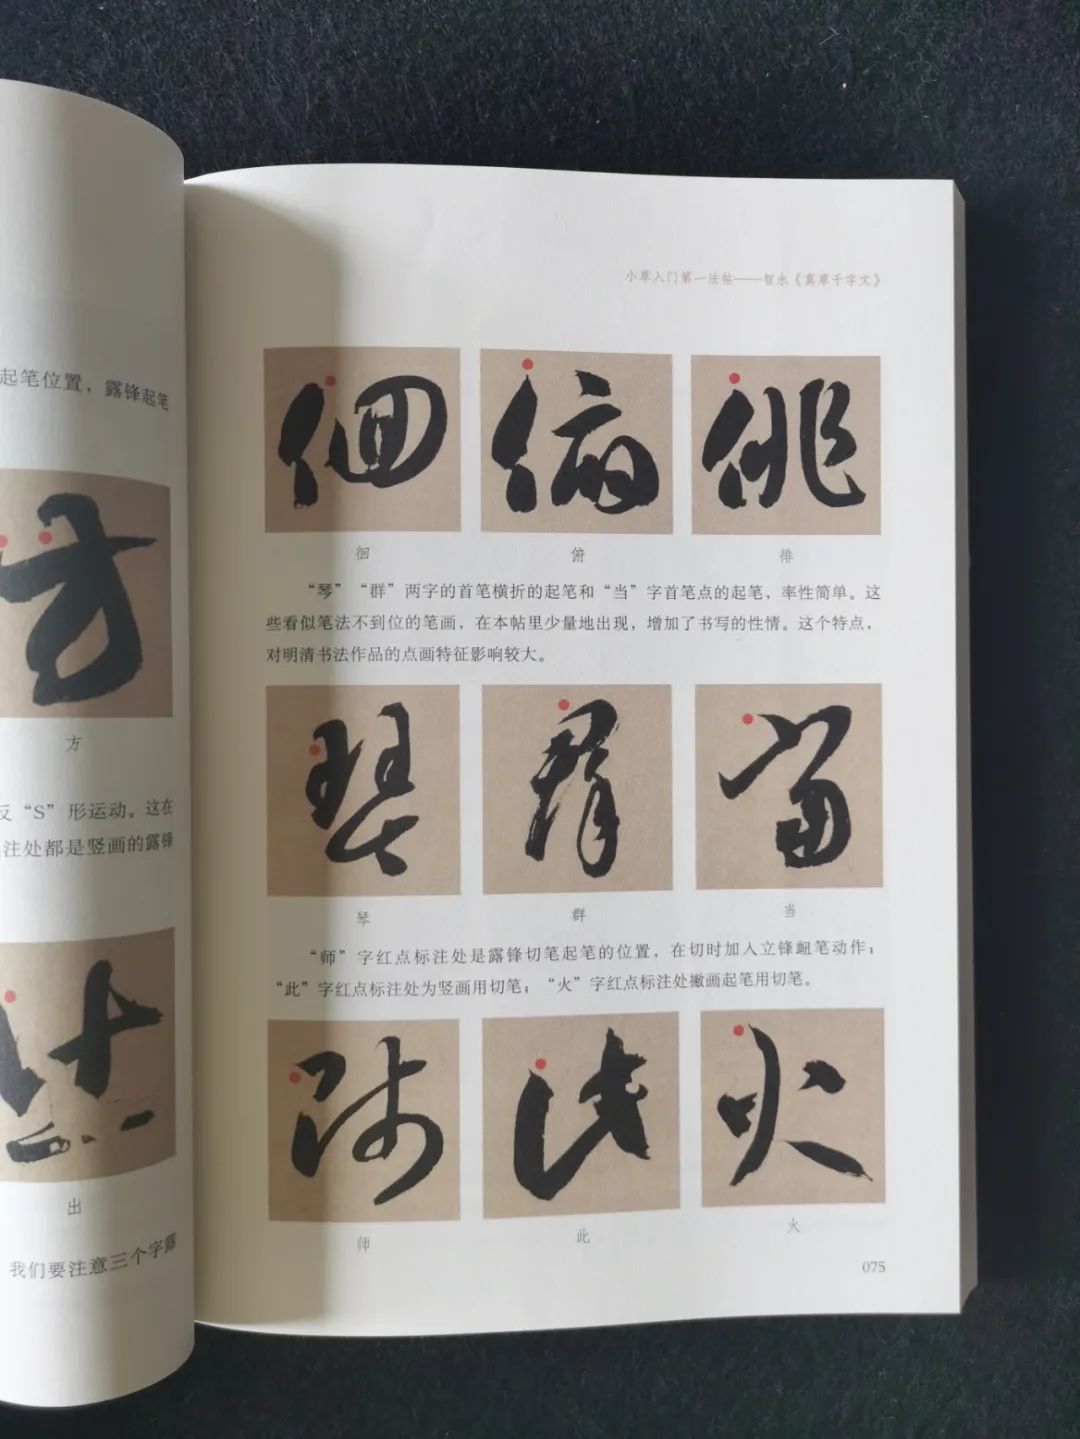 起笔位置，露锋起笔
方
反“S”形运动。这在
注处都是竖画的露锋
出
我们要注意三个字露
小草入门第一法帖——智永《真草千字文》
徊
俯
徘
“琴”“群”两字的首笔横折的起笔和“当”字首笔点的起笔，率性简单。这
些看似笔法不到位的笔画，在本帖里少量地出现，增加了书写的性情。这个特点，
对明清书法作品的点画特征影响较大。
琴
群
当
“师”字红点标注处是露锋切笔起笔的位置，在切时加入立锋衄笔动作；
“此”字红点标注处为竖画用切笔；“火”字红点标注处撇画起笔用切笔。
师
此
火
075